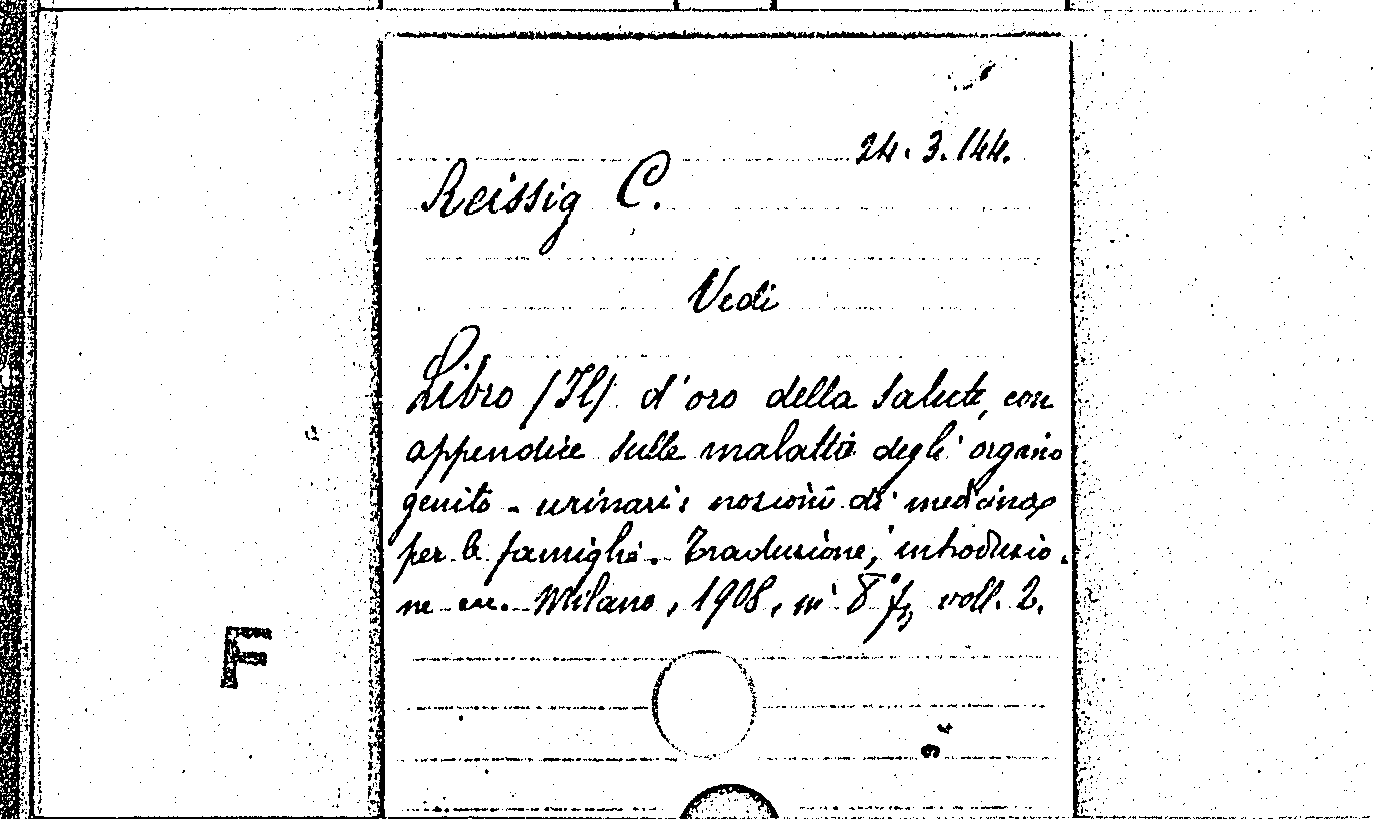 24. 3. 144.
Reissig C.
Vedi
Libro /Il/ d'oro della salute, con
appendice sulle malattie degli organi
genito - urinari; nozioni di medicina
per le famiglie. Traduzione, introduzio-
ne ecc. Milano, 1908, in 8° voll. 2.
F